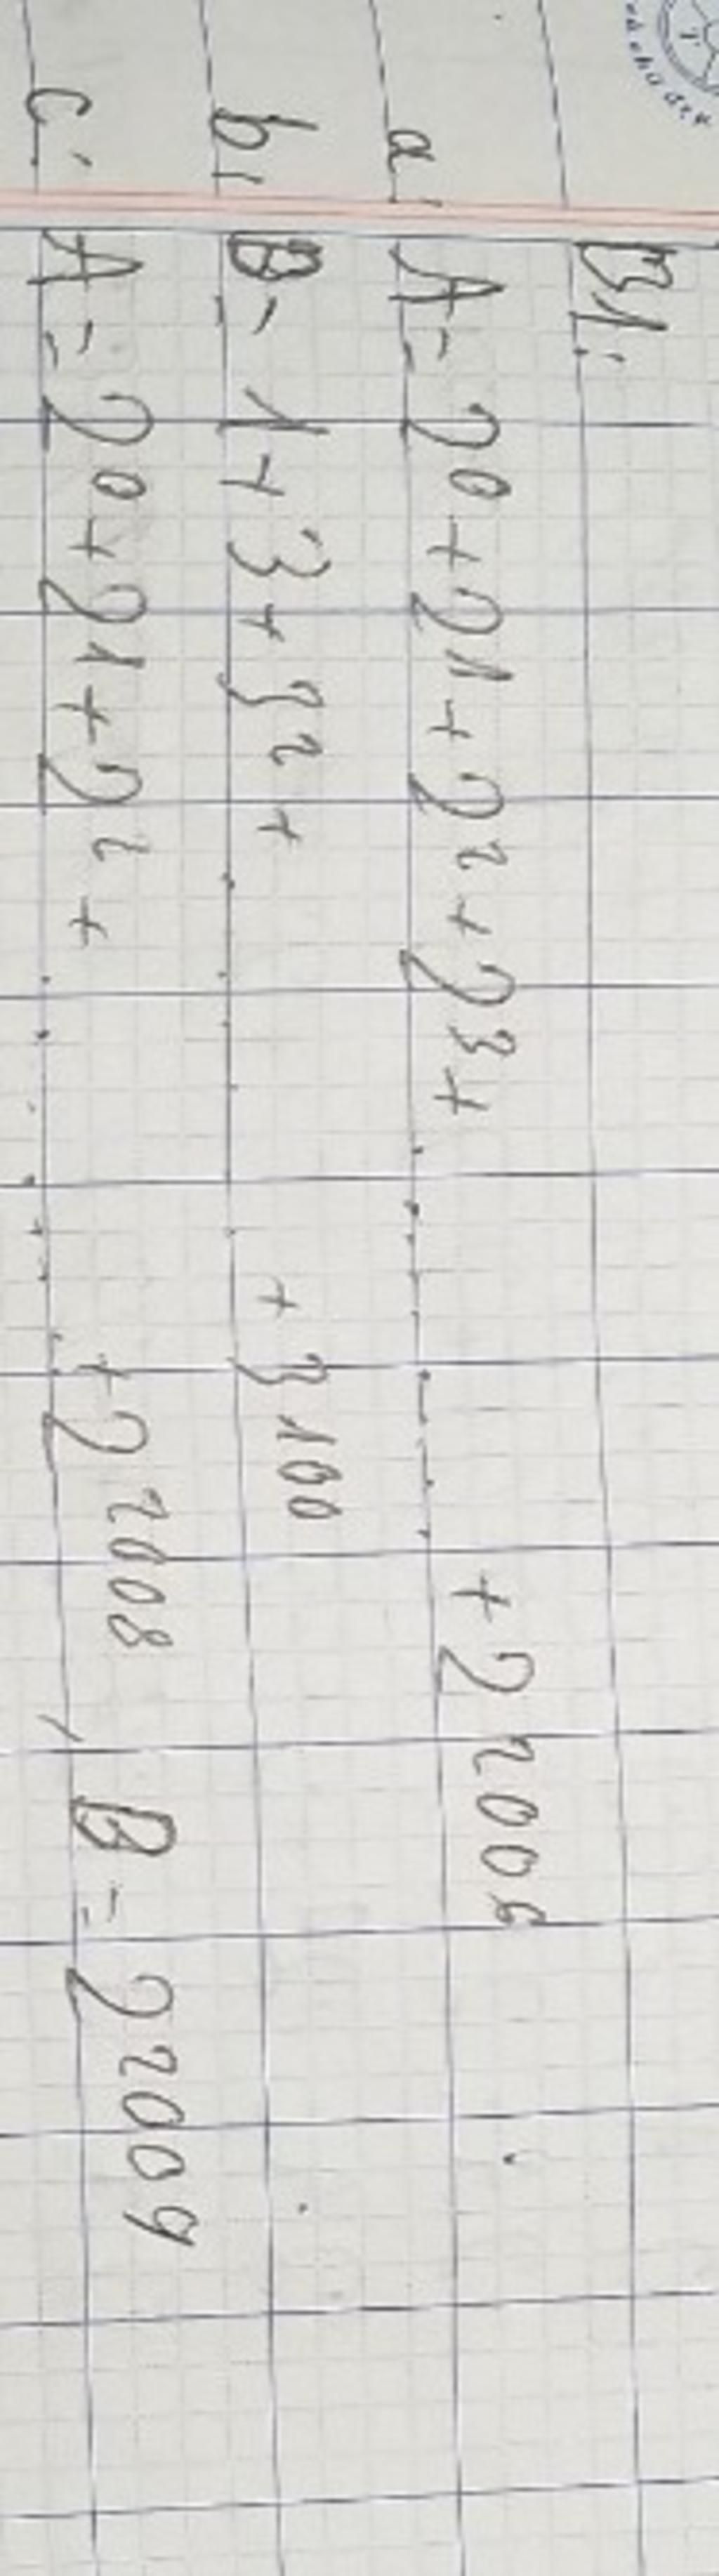 B1:
a: A = 2⁰ + 2¹ + 2² + 2³ + ........ + 2²⁰⁰⁶
b, B = 1 + 3 + 3² + ........ + 3¹⁰⁰
c: A = 2⁰ + 2¹ + 2² + ........ + 2²⁰⁰⁸, B = 2²⁰⁰⁹